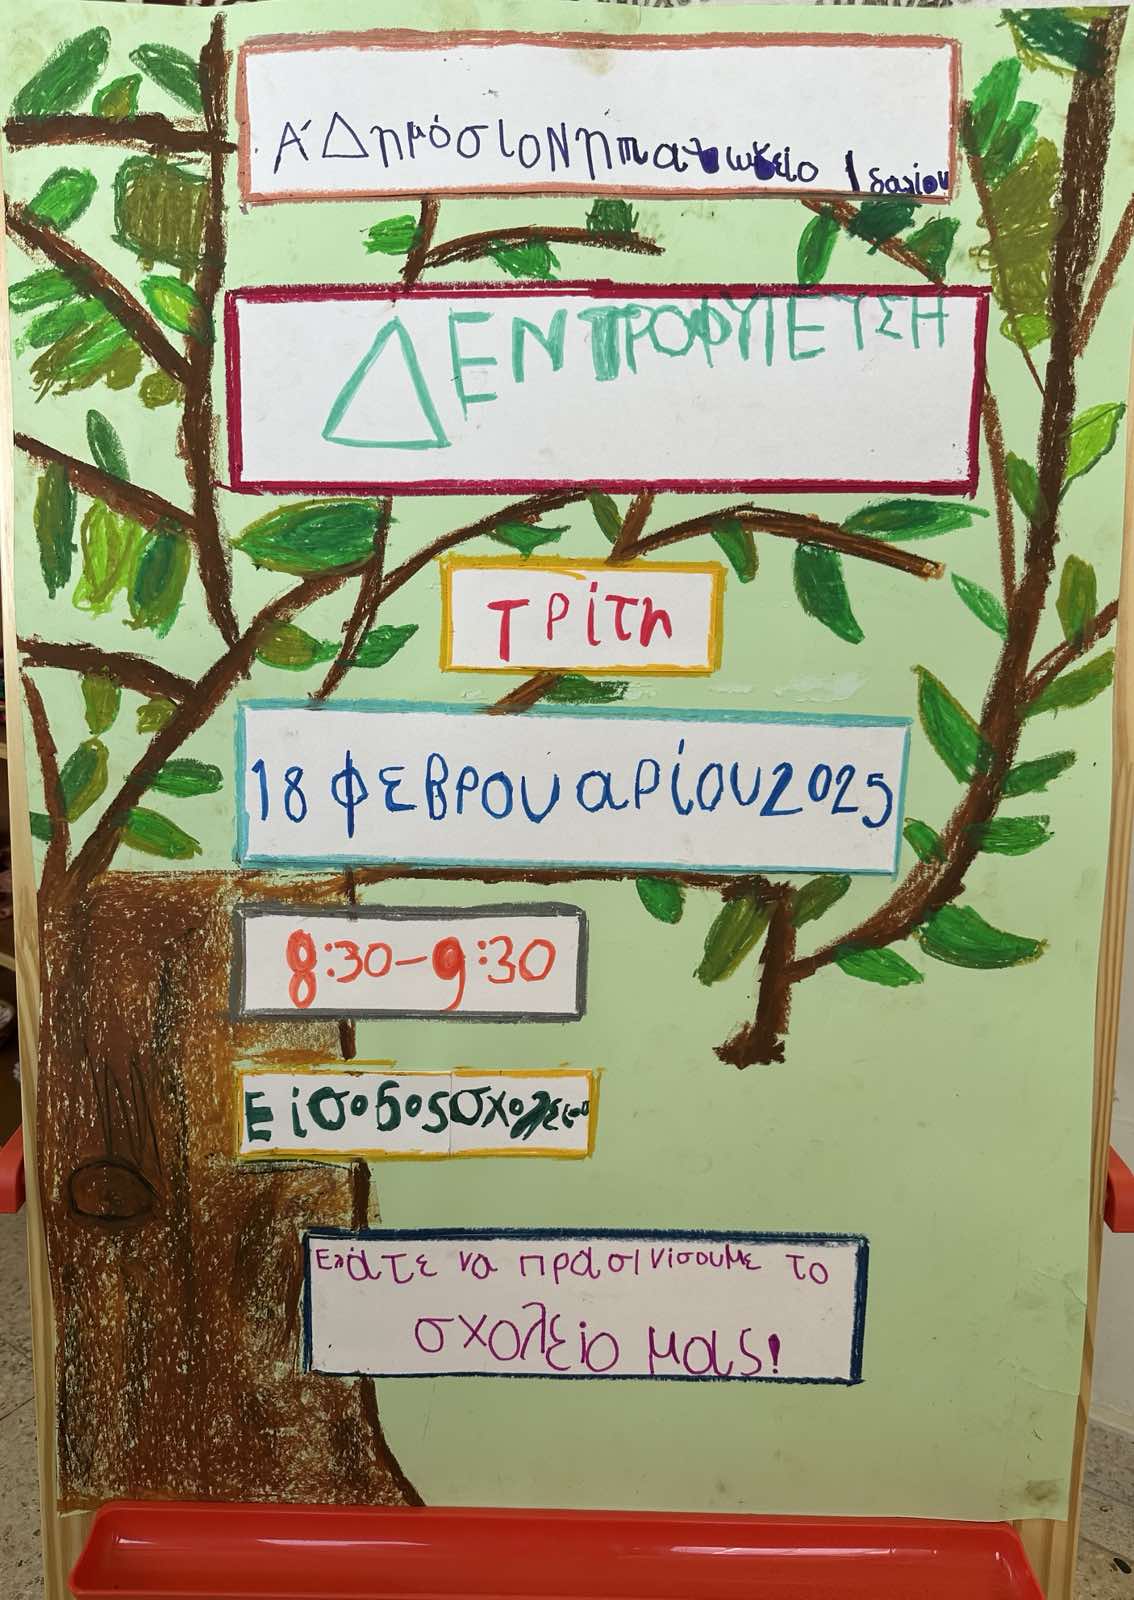 Α' Δημόσιο Νηπιαγωγείο Ιδαλίου
ΔΕΝΤΡΟΦΥΤΕΥΣΗ
Τρίτη
18 Φεβρουαρίου 2025
8:30-9:30
Είσοδος σχολείου
Ελάτε να πρασινίσουμε το
σχολείο μας!